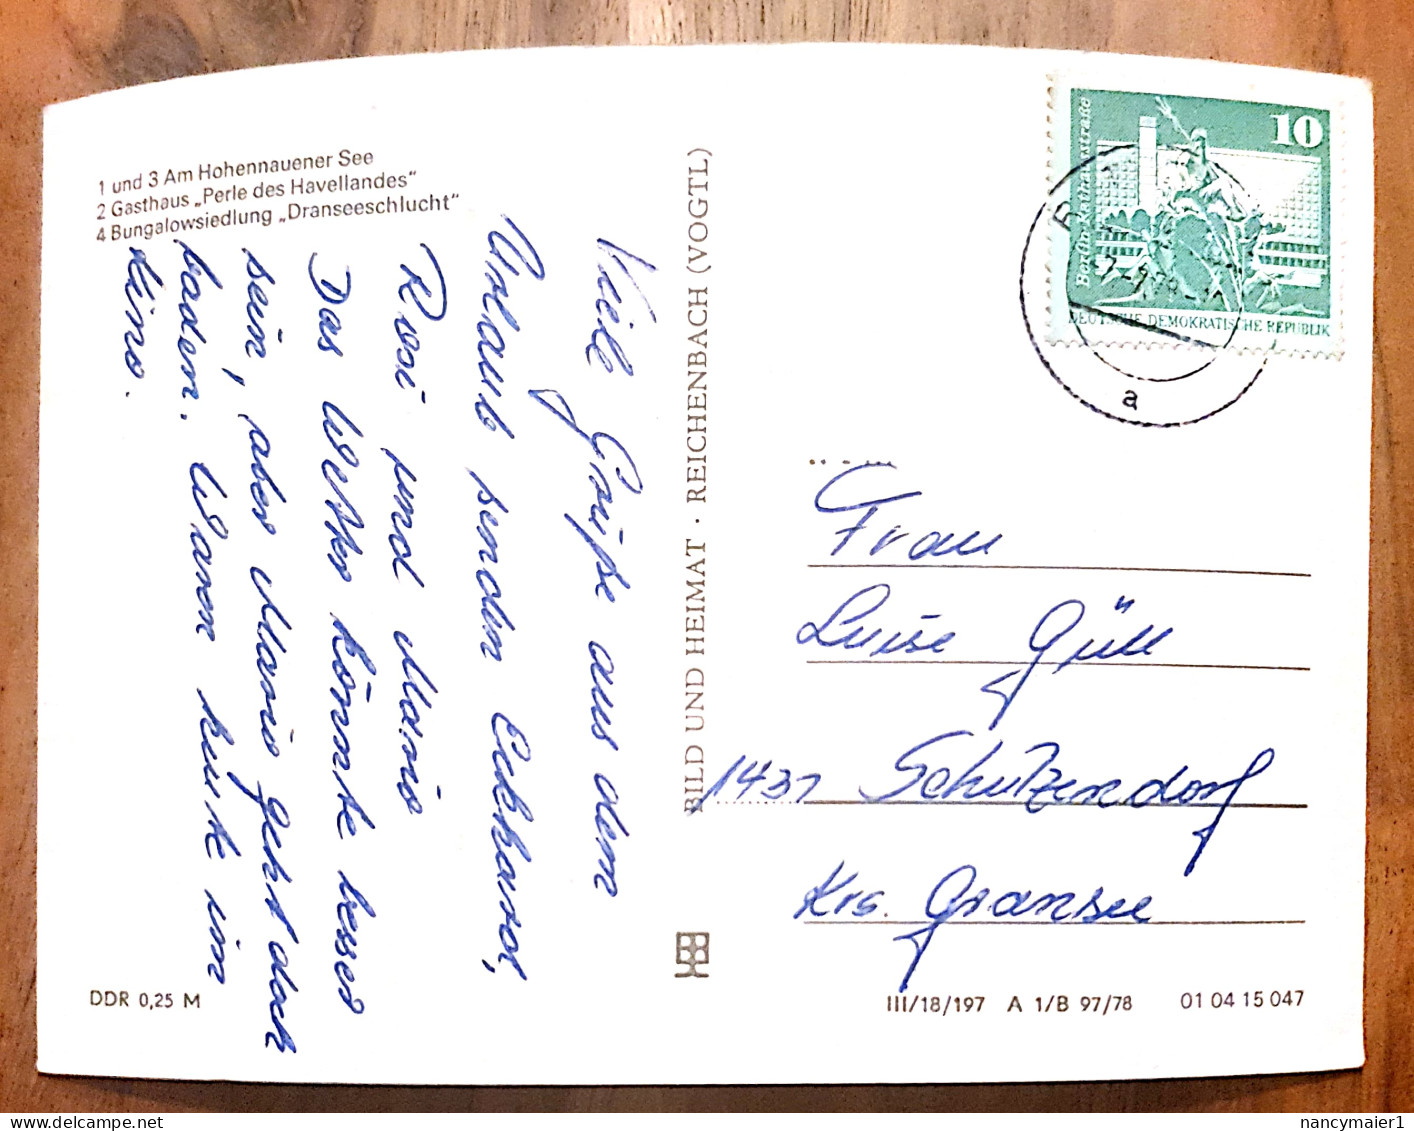 1 und 3 Am Hohennauener See
2 Gasthaus „Perle des Havellandes“
4 Bungalowsiedlung „Dranseeschlucht“
Viele Grüße aus dem
Urlaub senden Eckhard,
Rosi und Mario
Das Wetter könnte besser
sein, aber Mario geht doch
baden. Waren heute im
Kino.
DDR 0,25 M
BILD UND HEIMAT · REICHENBACH (VOGTL)
10
Berlin-Rathausstraße
DEUTSCHE DEMOKRATISCHE REPUBLIK
a
Frau
Luise Güll
1431 Schulzendorf
Krs. Gransee
III/18/197 A 1/B 97/78 01 04 15 047
nancymaier1